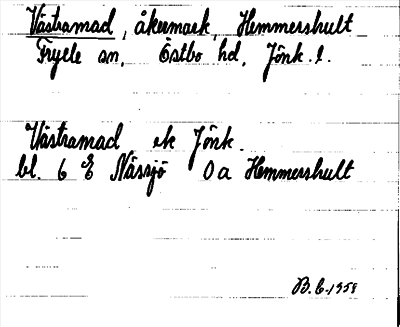 Västramad, åkermark, Hemmershult
Fryele sn, Östbo hd, Jönk. l.
Västramad ek Jönk.
bl. 6 E Nässjö Oa Hemmershult
B.E. 1958